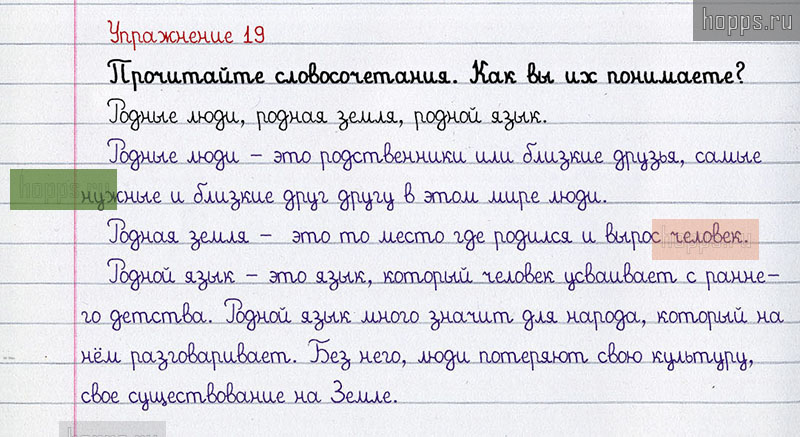 hopps.ru
Упражнение 19
Прочитайте словосочетания. Как вы их понимаете?
Родные люди, родная земля, родной язык.
Родные люди – это родственники или близкие друзья, самые
нужные и близкие друг другу в этом мире люди.
hopps.ru
Родная земля – это то место где родился и вырос человек.
hopps.ru
Родной язык – это язык, который человек усваивает с ранне-
го детства. Родной язык много значит для народа, который на
нём разговаривает. Без него, люди потеряют свою культуру,
свое существование на Земле.
hopps.ru